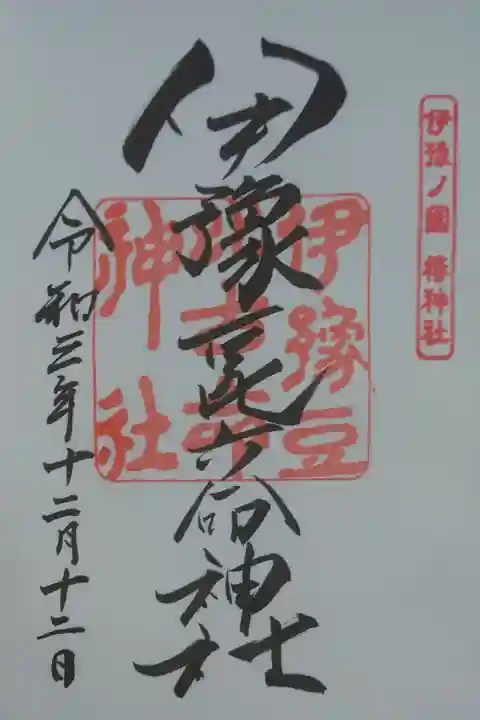 伊豫ノ國 椿神社
伊豫豆比古命神社
伊豫豆
比古命
神社
令和三年十二月十二日